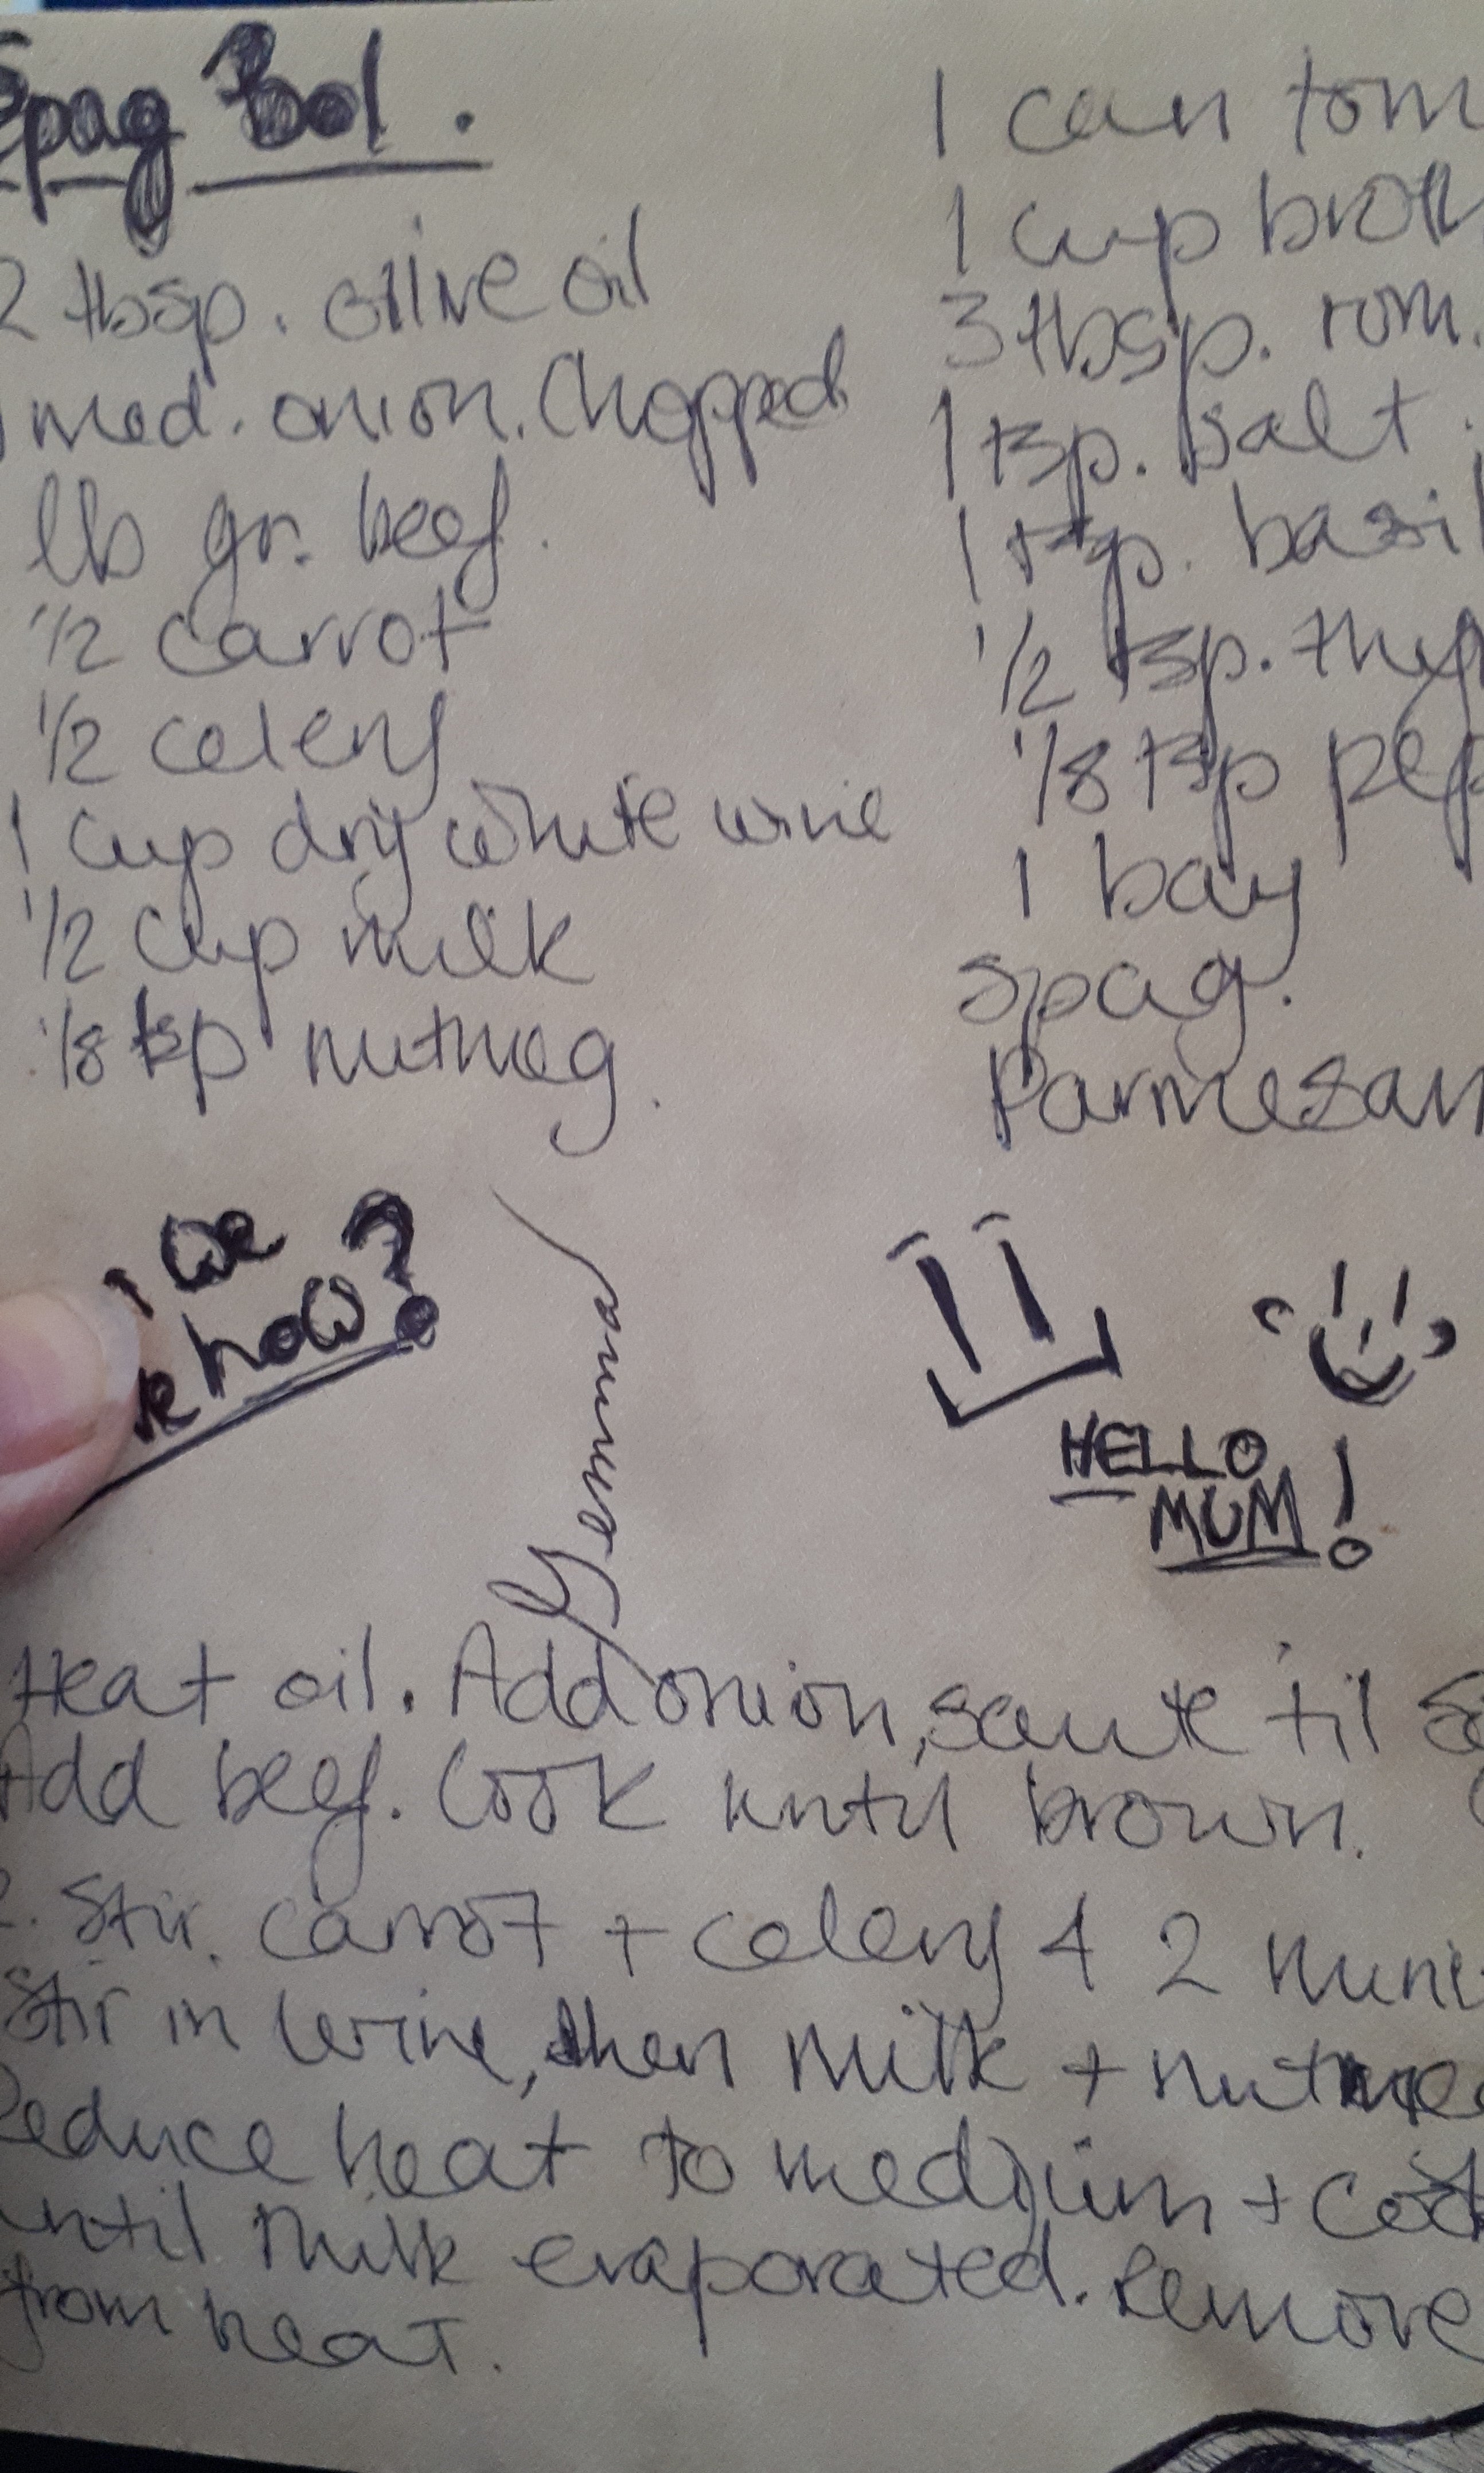 Spag Bol.
2 tbsp. olive oil
med. onion. Chopped
lb gr. beef.
1/2 carrot
1/2 celery
1 cup dry white wine
1/2 cup milk
1/8 tsp nutmeg.
1 can tom
1 cup broth
3 tbsp. tom.
1 tsp. salt.
1 tsp. basil
1/2 tsp. thy
1/8 tsp pep
1 bay
Spag.
Parmesan
we
now?
Gemma
HELLO
MUM!
Heat oil. Add onion, saute til so
Add beef. Cook until brown.
2. Stir. carrot + celery 4 2 minu
Stir in wine, then milk + nutmeg
Reduce heat to medium + cook
until milk evaporated. Remove
from heat.